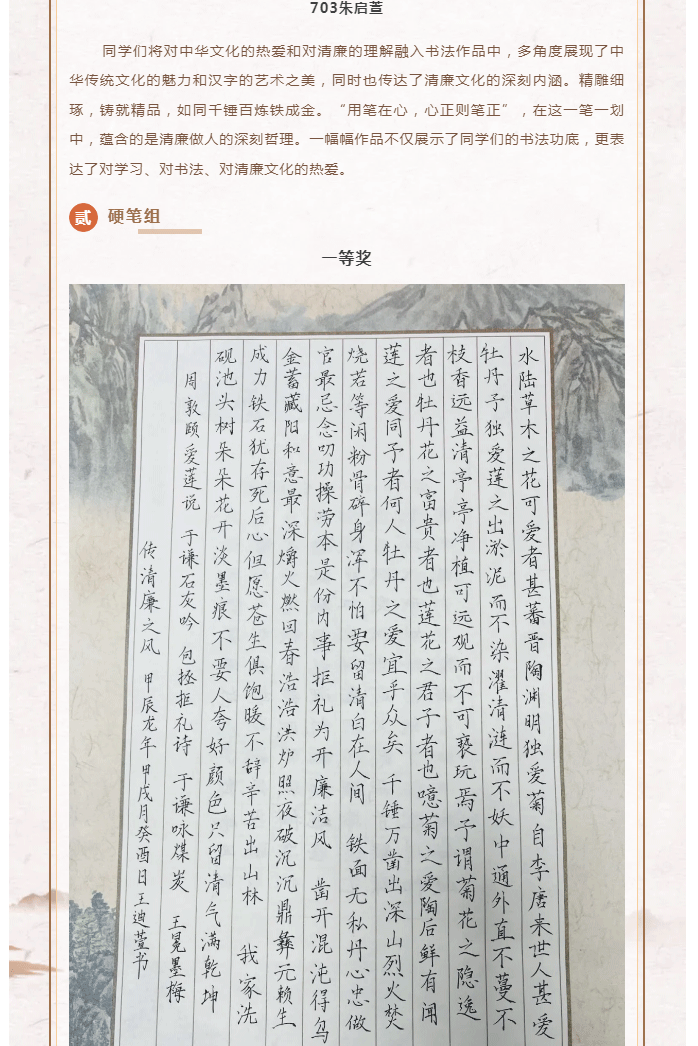 703朱启萱
同学们将对中华文化的热爱和对清廉的理解融入书法作品中，多角度展现了中
华传统文化的魅力和汉字的艺术之美，同时也传达了清廉文化的深刻内涵。精雕细
琢，铸就精品，如同千锤百炼铁成金。“用笔在心，心正则笔正”，在这一笔一划
中，蕴含的是清廉做人的深刻哲理。一幅幅作品不仅展示了同学们的书法功底，更表
达了对学习、对书法、对清廉文化的热爱。
贰 硬笔组
一等奖
水陆草木之花可爱者甚蕃晋陶渊明独爱菊自李唐来世人甚爱
牡丹予独爱莲之出淤泥而不染濯清涟而不妖中通外直不蔓不
枝香远益清亭亭净植可远观而不可亵玩焉予谓菊花之隐逸
者也牡丹花之富贵者也莲花之君子者也噫菊之爱陶后鲜有闻
莲之爱同予者何人牡丹之爱宜乎众矣 千锤万凿出深山烈火焚
烧若等闲粉骨碎身浑不怕要留清白在人间 铁面无私丹心忠做
官最忌念叨功操劳本是份内事拒礼为开廉洁风 凿开混沌得乌
金蓄藏阳和意最深爝火燃回春浩浩洪炉照夜破沉沉鼎彝元赖生
成力铁石犹存死后心但愿苍生俱饱暖不辞辛苦出山林 我家洗
砚池头树朵朵花开淡墨痕不要人夸好颜色只留清气满乾坤
周敦颐爱莲说 于谦石灰吟 包拯拒礼诗 于谦咏煤炭 王冕墨梅
传清廉之风 甲辰龙年甲戌月癸酉日王迪萱书